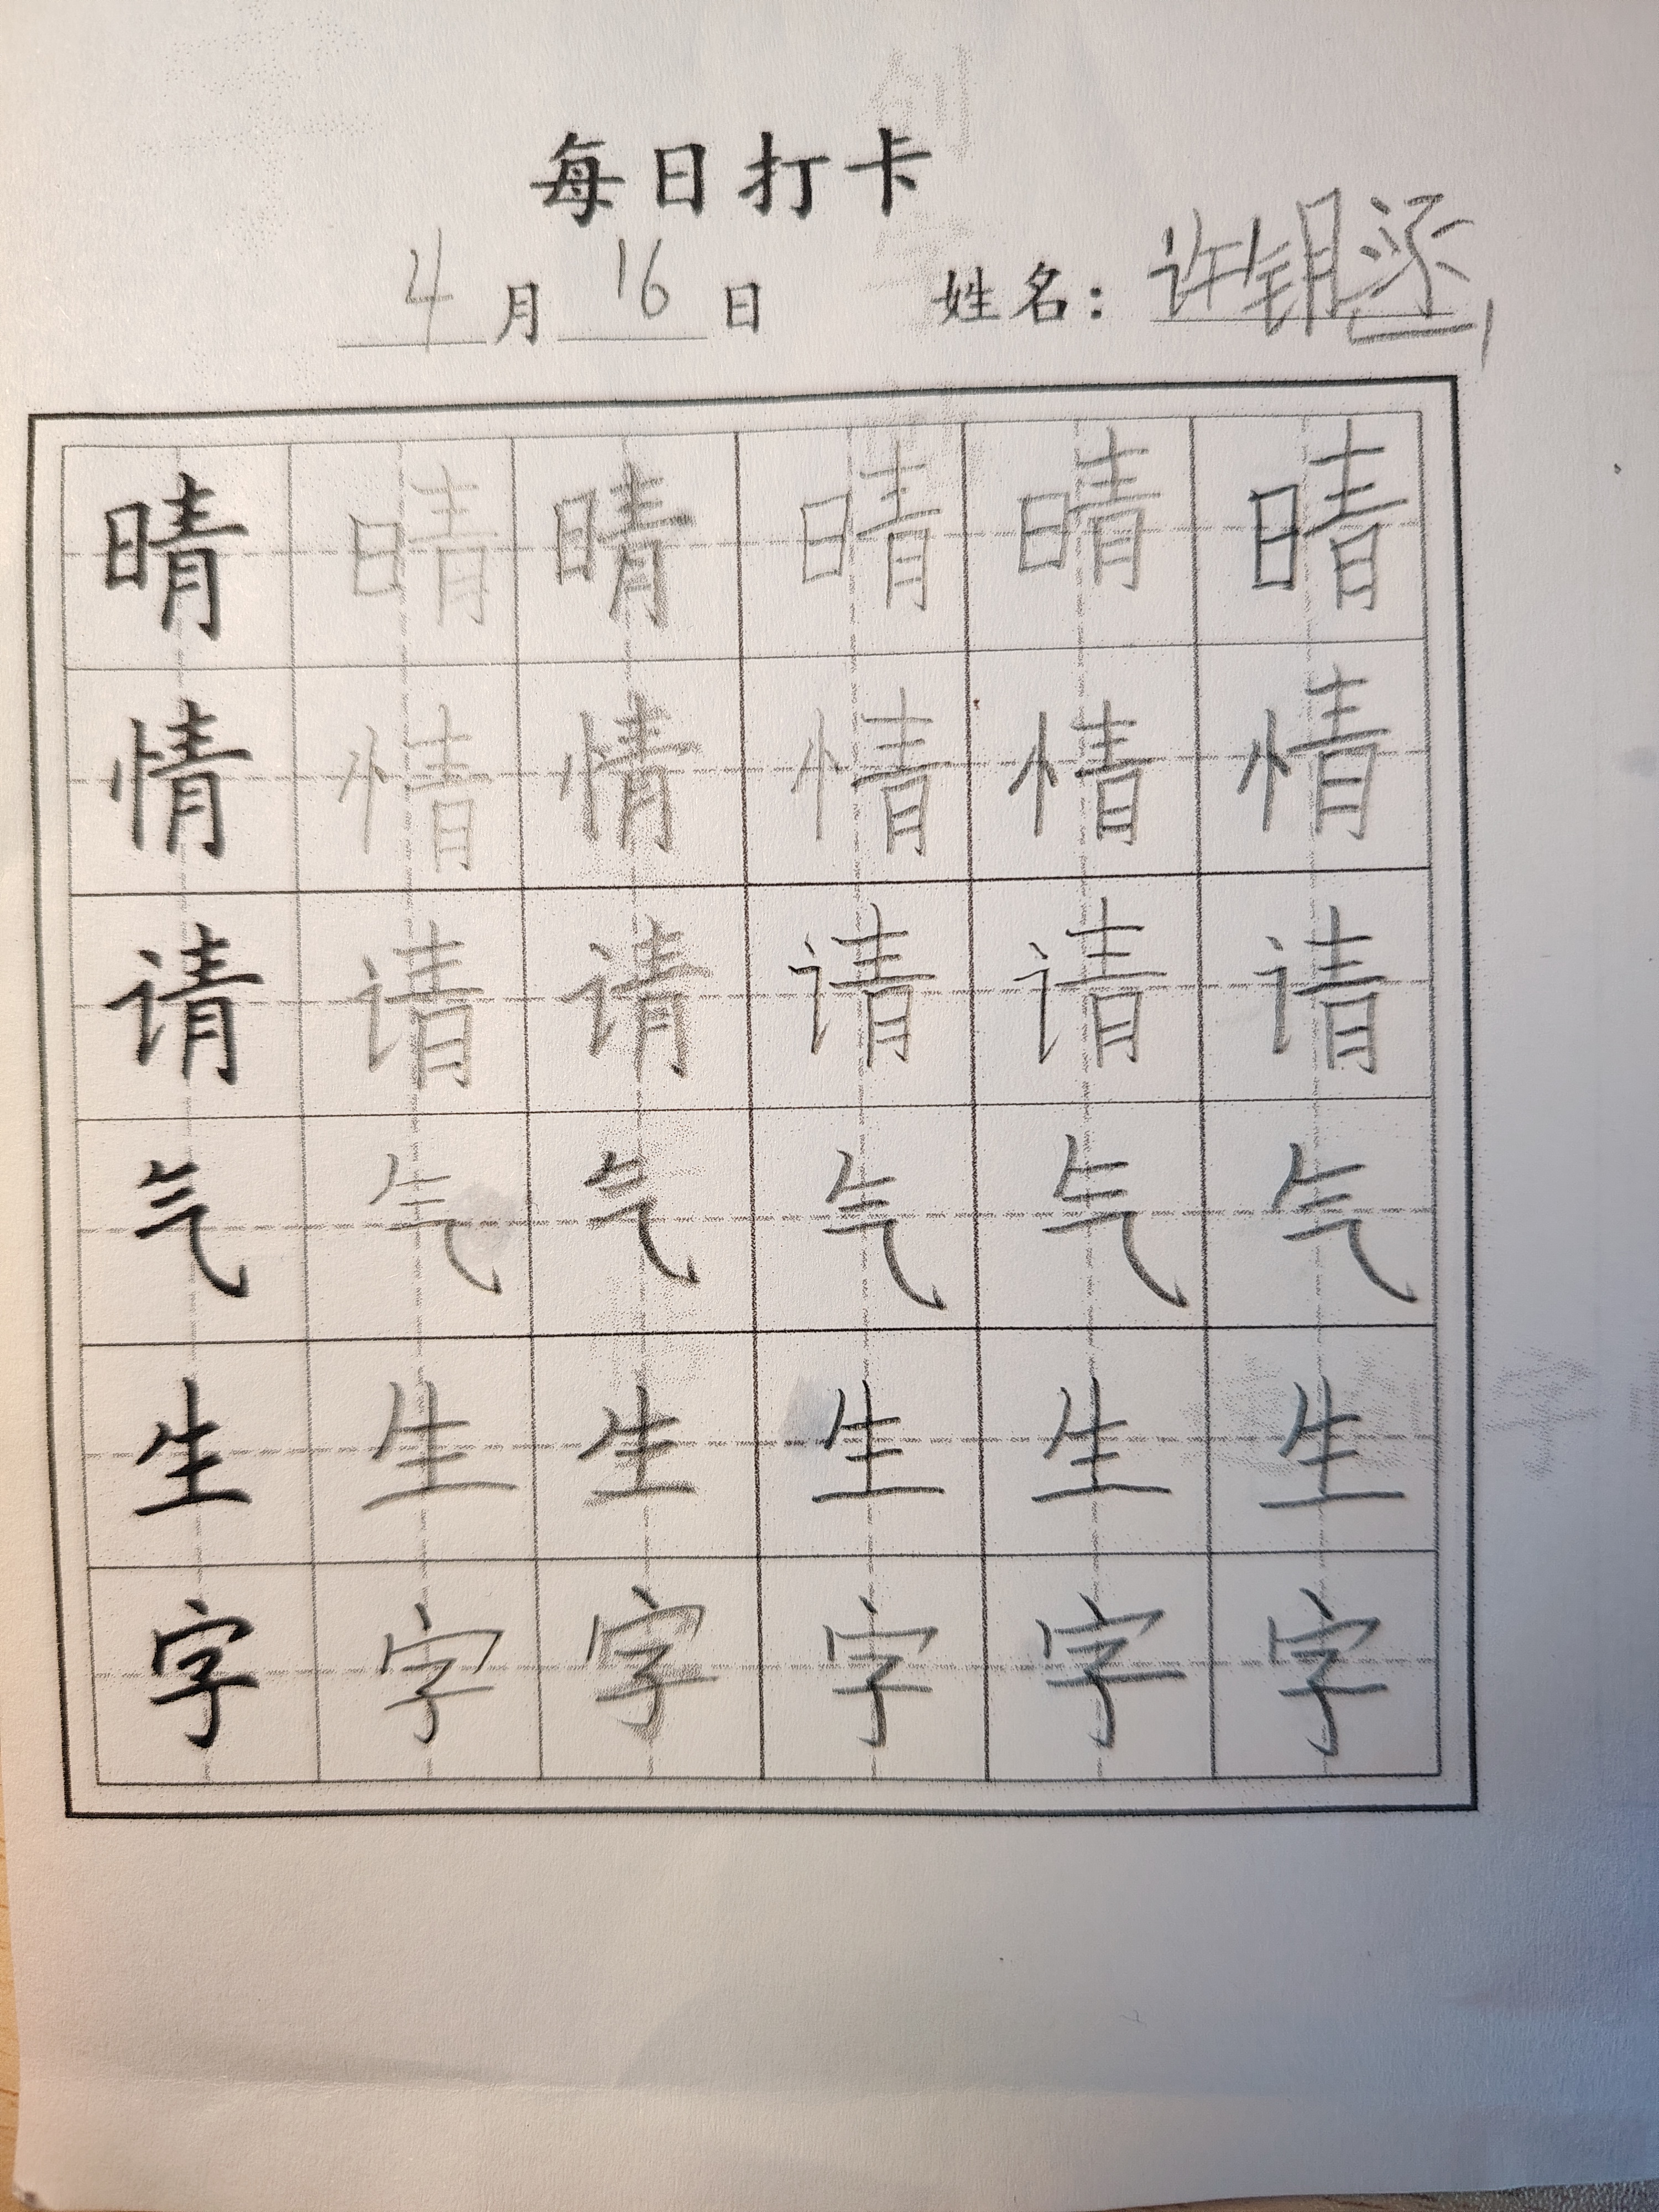 每日打卡
4月16日 姓名：许钥
晴 晴 晴 晴 晴 晴
情 情 情 情 情 情
请 请 请 请 请 请
气 气 气 气 气 气
生 生 生 生 生 生
字 字 字 字 字 字